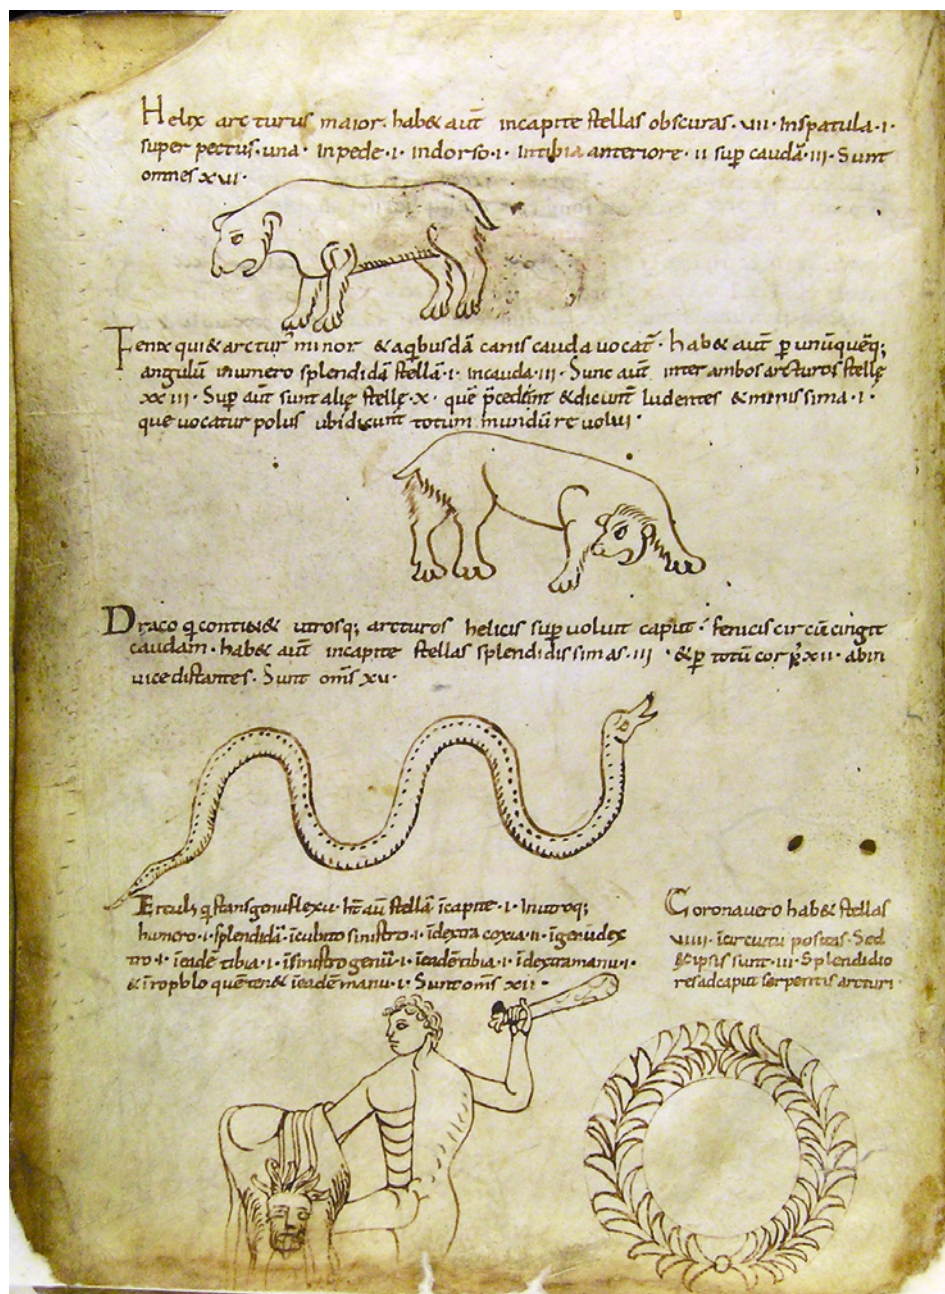 Helix arcturus maior. hab& aut̄ incapite stellas obscuras. vii. Inspatula .i.
super pectus. una. inpede .i. indorso .i. intibia anteriore. ii sup̱ caudā. iii. Sunt
omnes xvi.
Fenix qui & arctur᾽ minor & aq̇busdā canis cauda vocat̄. hab& aut̄ p̱ unūquēq;
angulū innumero splendidā stellā .i. incauda. iii. Sunc aut̄ inter ambos arcturos stellę
xx iii. Sup̱ aut̄ sunt alię stellę. x. quę p̄cedunt & dicunt̄ ludentes & minissima .i.
que vocatur polus ubi dicunt totum mundū revolui.
Draco q̇ contin& utrosq; arcturos helicis sup̱ voluit caput. fenicis circū cingit
caudam. hab& aut̄ incapite stellas splendidissimas. iii. & p̱ totū corp᾽ xii. abin
vice distantes. Sunt om̄s xv.
Erculis q̇ stans genu flexu. ht̄ aū stellā īcapite .i. Inutroq;
humero .i. splendidā. īcubito sinistro .i. īdextra coxia. ii. īgenu dex
tro .i. īeadē tibia .i. īsinistro genu .i. īeadē tibia .i. īdextra manu .i.
& īropolo quē ten& īeadē manu .i. Sunt om̄s xii.
Corona vero hab& stellas
viiii. īcircuitu positas. Sed
& ipsis sunt. iii. Splendidio
res ad caput serpentis arcturi.